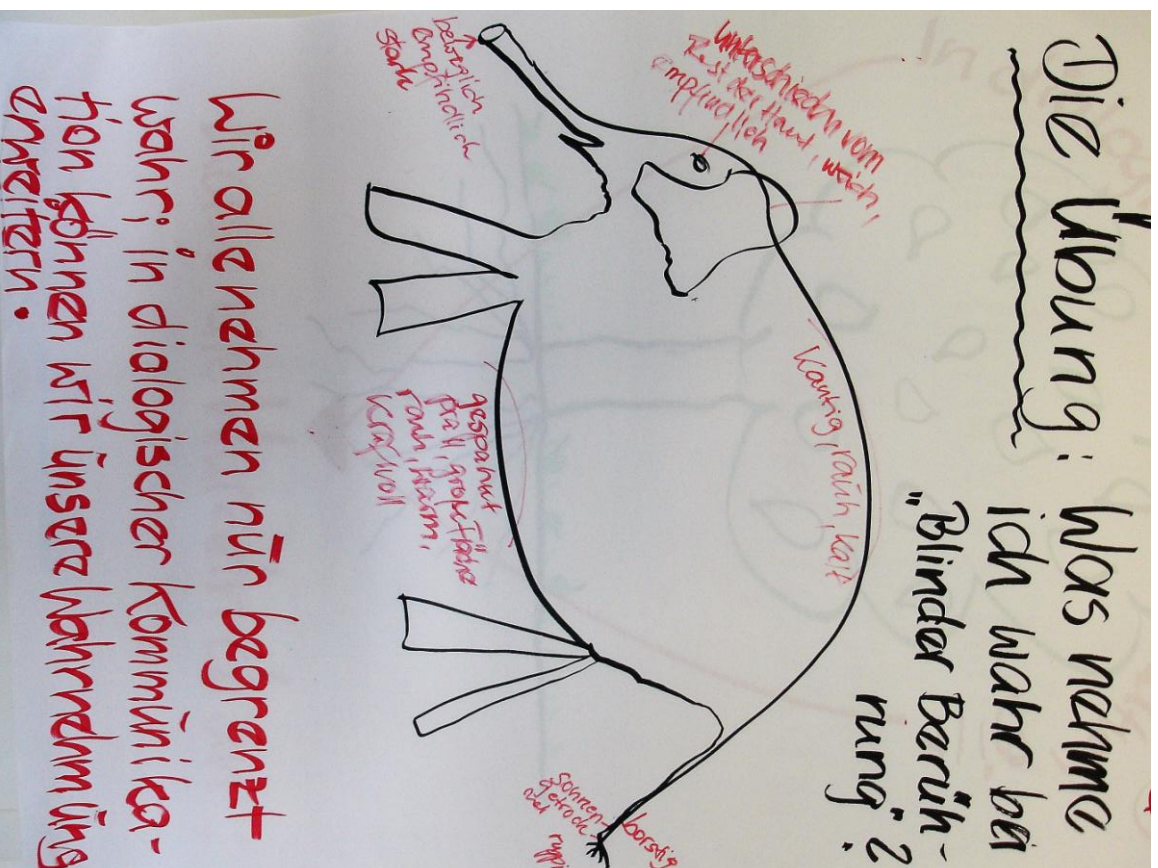 Die Übung: Was nehme
ich wahr bei
"Blinder Berüh-
rung"?
unterschiedn vom
Rest der Haut, weich,
empfindlich
beweglich
empfindlich
stark
Kantig, rauh, kalt
gespannt
prall, große Fläche
rauh, warm,
kraftvoll
borstig
sonnen-
getrock-
net
Wir alle nehmen nur begrenzt
wahr; in dialogischer Kommunika-
tion können wir unsere Wahrnehmung
erweitern.